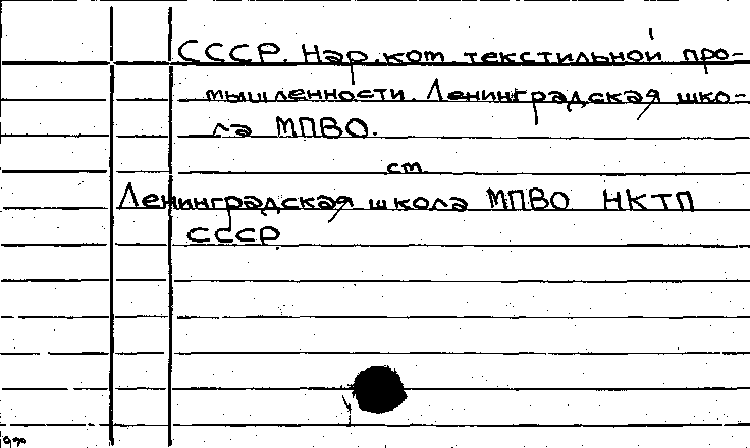 СССР. Нар.ком текстильной про-
мышленности. Ленинградская шко-
ла МПВО.
см
Ленинградская школа МПВО НКТП
СССР